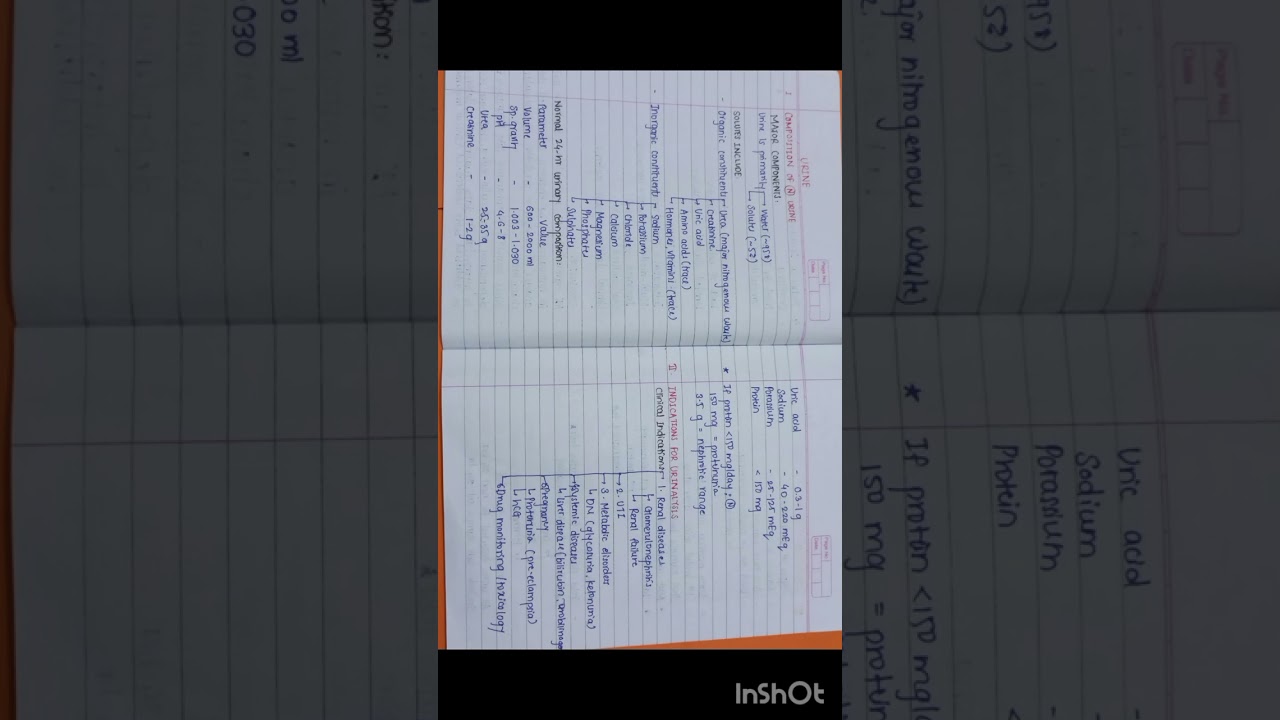 URINE
I. COMPOSITION OF Ⓝ URINE
MAJOR COMPONENTS:
Urine is primarily → Water (~95%)
↳ Solutes (~5%)
SOLUTES INCLUDE
- Organic constituents - Urea (major nitrogenous waste)
↳ Creatinine
↳ Uric acid
↳ Amino acids (trace)
↳ Hormones, vitamins (trace)
- Inorganic constituents - Sodium
↳ Potassium
↳ Chloride
↳ Calcium
↳ Magnesium
↳ Phosphates
↳ Sulphates
Normal 24-hr urinary composition:
Parameter Value
Volume - 600 - 2000 ml
Sp. gravity - 1.003 - 1.030
pH - 4.6-8
Urea - 25-35 g
Creatinine - 1-2 g
Uric acid - 0.3-1 g
Sodium - 40-220 mEq
Potassium - 25-125 mEq
Protein - < 150 mg
* If protein <150 mg/day = Ⓝ
150 mg = proteinuria
3.5 g = nephrotic range
II. INDICATIONS FOR URINALYSIS
Clinical Indications - 1. Renal diseases
↳ Glomerulonephritis
↳ Renal failure
→ 2. UTI
→ 3. Metabolic disorders
↳ DN (glycosuria, ketonuria)
→ 4) Systemic diseases
↳ Liver disease (bilirubin, urobilinogen
→ 5) Pregnancy
↳ Proteinuria (pre-eclampsia)
↳ hCG
→ 6) Drug monitoring / toxicology
InShOt